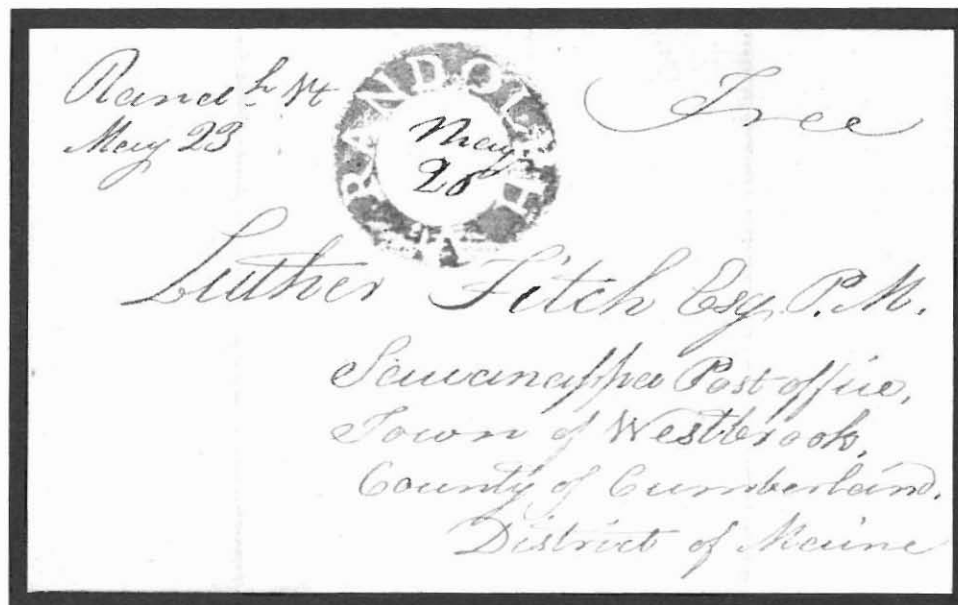 Rand h Vt
May 23
RANDOLPH
May
Free
Luther Fitch Esq. P.M.
Sawanappa Post office,
Town of Westbrook,
County of Cumberland.
District of Maine